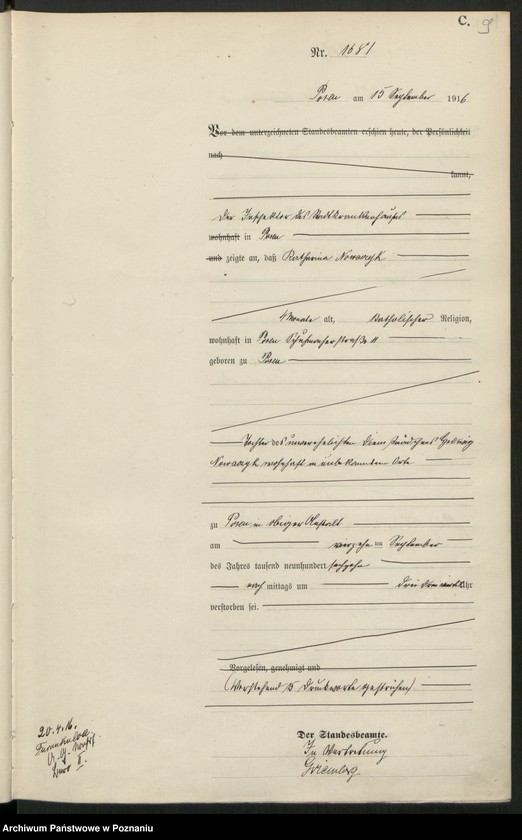 C. 9
Nr. 1681
Posen am 15 September 1916
Vor dem unterzeichneten Standesbeamten erschien heute, der Persönlichkeit
nach
kannt,
Der Inspektor des Stadtkrankenhauses
wohnhaft in Posen
und zeigte an, daß Katharina Nowaczyk
4 Monate alt, katholischer Religion,
wohnhaft in Posen Schuhmacherstraße 11
geboren zu Posen
Tochter des unverehelichten Dienstmädchens Hedwig
Nowaczyk wohnhaft in unbekanntem Orte
zu Posen in obiger Anstalt
am vierzehn ten September
des Jahres tausend neunhundert sechzehn
nach mittags um drei Uhr
verstorben sei.
Vorgelesen, genehmigt und
(Vorstehend 15 Druckworte gestrichen)
Der Standesbeamte.
In Vertretung
20.4.16.
Archiwum Państwowe w Poznaniu